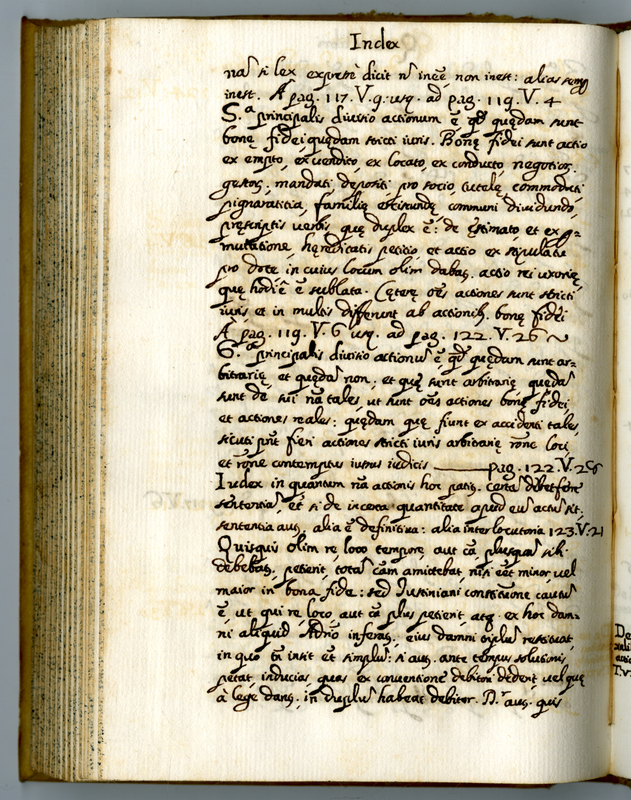 Index
nã si lex expresse dicit nõ inēe non inest: alias semp
inest. A pag. 117. V. 9. usq. ad pag. 119. V. 4
5.ª principalis divisio actionum ē qđ quędam sunt
bonę fidei quędam stricti iuris. Bonę fidei sunt actio
ex empto, ex vendito, ex locato, ex conducto, negotior.
gestor. mandati, depositi, pro socio, tutelę, commodati
pignaratitia, familię erciscundę, communi dividundo,
pręscriptis verbis, quę duplex ē: de ęstimato et ex p=
mutatione, hęreditatis petitio et actio ex stipulatu
pro dote in cuius locum olim dabat. actio rei uxorię
quę hodiē ē sublata. Cęterę oẽs actiones sunt stricti
iuris et in multis differunt ab actionib. bonę fidei
A pag. 119. V. 6 usq. ad pag. 122. V. 26
6.ª principalis divisio actionũ ē qđ quędam sunt ar=
bitrarię et quędã non; et quę sunt arbitrarię quędã
sunt de sui nã tales, ut sunt oẽs actiones bonę fidei,
et actiones reales: quędam quę fiunt ex accidenti tales,
sicuti pñt fieri actiones stricti iuris arbitrarię rõne loci,
et rõne contemptus iussus iudicis pag. 122. V. 26
Iudex in quantum nã actionis hoc patit. certã debet ferre
sententiã, et si de incerta quantitate apud eũ actũ sit.
sententia aut. alia ē definitiva: alia interlocutoria 123. V. 21
Quisquis olim re loco tempore, aut cã plusquã sibi
debebat. petierit totã cãm amittebat nisi eēt minor vel
maior in bona fide: sed Iustiniani constitutione cautũ
ē, ut qui re, loco, aut cã plus petierit, atq. ex hoc dam=
ni aliquid Adrio inferat. eius damni triplũ restituat,
in quo tñ insit et simplũ: si aut. ante tempus solutionis
petat inducias, quas ex conventione debitori dederit vel quę
à lege dant. in duplũ habeat debitor. D.r aut. quis